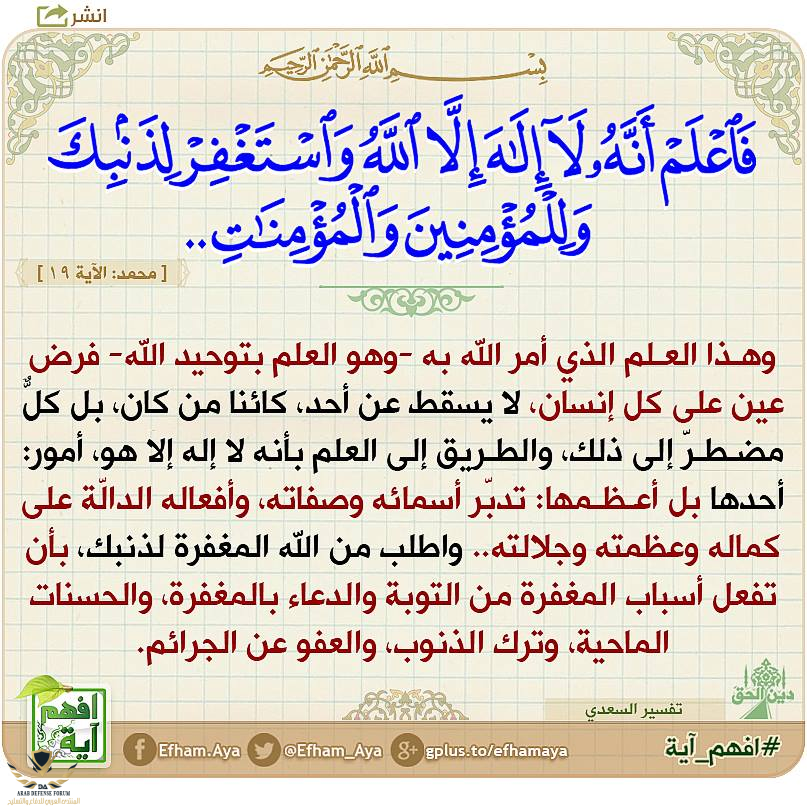 انشر
بِسْمِ ٱللَّهِ ٱلرَّحْمَٰنِ ٱلرَّحِيمِ
فَٱعْلَمْ أَنَّهُۥ لَآ إِلَٰهَ إِلَّا ٱللَّهُ وَٱسْتَغْفِرْ لِذَنۢبِكَ
وَلِلْمُؤْمِنِينَ وَٱلْمُؤْمِنَٰتِ..
[ محمد: الآية ١٩ ]
وهـذا العـلم الذي أمر الله به -وهو العلم بتوحيد الله- فرض
عين على كل إنسان، لا يسقط عن أحد، كائنا من كان، بل كلٌّ
مضـطـرّ إلى ذلك، والطـريق إلى العلم بأنه لا إله إلا هو، أمور:
أحدها بل أعـظـمها: تدبّر أسمائه وصفاته، وأفعاله الدالّة على
كماله وعظمته وجلالته.. واطلب من الله المغفرة لذنبك، بأن
تفعل أسباب المغفرة من التوبة والدعاء بالمغفرة، والحسنات
الماحية، وترك الذنوب، والعفو عن الجرائم.
تفسير السعدي
دين الحق
افهم
آية
Efham.Aya
@Efham_Aya
gplus.to/efhamaya
#افهم_آية
DA
ARAB DEFENSE FORUM
المنتدى العربي للدفاع والتسليح